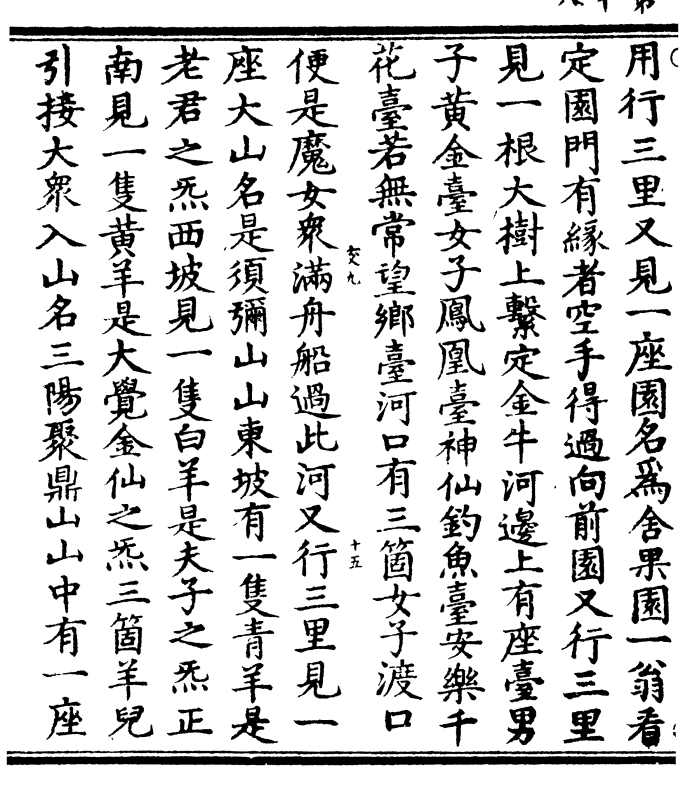 用行三里又見一座園名爲舍果園一翁看
定園門有緣者空手得過向前園又行三里
見一根大樹上繫定金牛河邊上有座臺男
子黃金臺女子鳳凰臺神仙釣魚臺安樂千
花臺若無常望鄉臺河口有三箇女子渡口
便是魔女衆滿舟船過此河又行三里見一
交九
十五
座大山名是須彌山山東坡有一隻青羊是
老君之炁西坡見一隻白羊是夫子之炁正
南見一隻黃羊是大覺金仙之炁三箇羊兒
引接大衆入山名三陽聚鼎山山中有一座